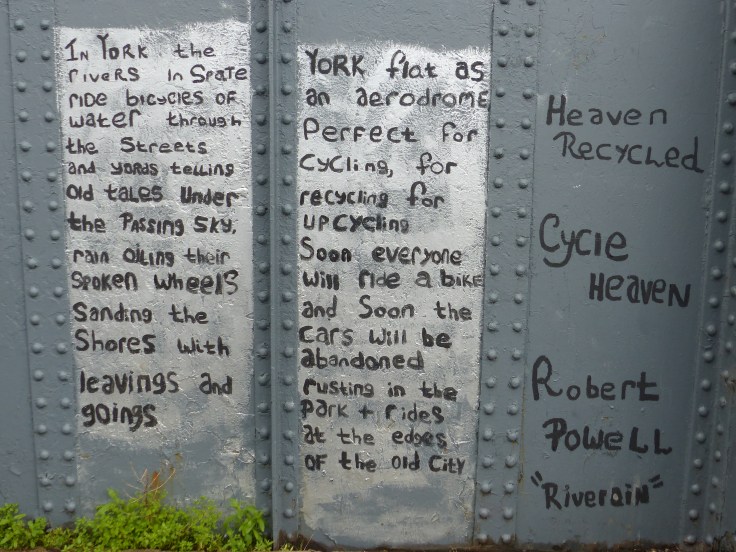 In York the
rivers in Spate
ride bicycles of
water through
the Streets
and yards telling
old tales Under
the Passing Sky,
rain oiling their
Spoken wheels
Sanding the
Shores with
leavings and
goings
YORK flat as
an aerodrome
Perfect for
CYCling, for
recycling for
UPCYcling
Soon everyone
will ride a bike
and Soon the
Cars will be
abandoned
rusting in the
park + rides
at the edges
of the old City
Heaven
Recycled
Cycle
Heaven
Robert
Powell
"Riverain"